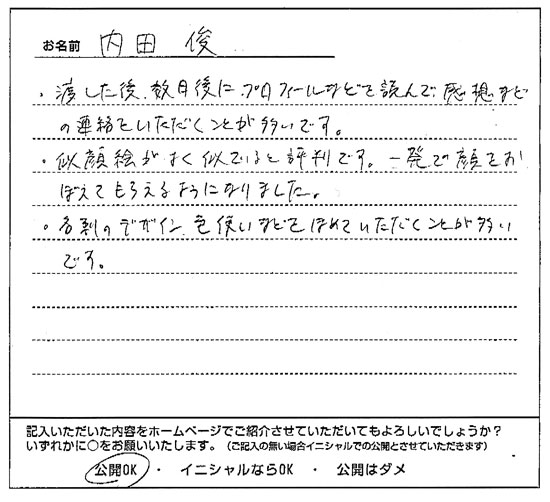 お名前 内田 俊
・渡した後、数日後に、プロフィールなどを読んで、感想など
の連絡をいただくことが多いです。
・似顔絵がよく似ていると評判です。一発で顔をお
ぼえてもらえるようになりました。
・名刺のデザイン、色使いなどをほめていただくことが多い
です。
記入いただいた内容をホームページでご紹介させていただいてもよろしいでしょうか?
いずれかに○をお願いいたします。(ご記入の無い場合イニシャルでの公開とさせていただきます)
公開OK ・ イニシャルならOK ・ 公開はダメ